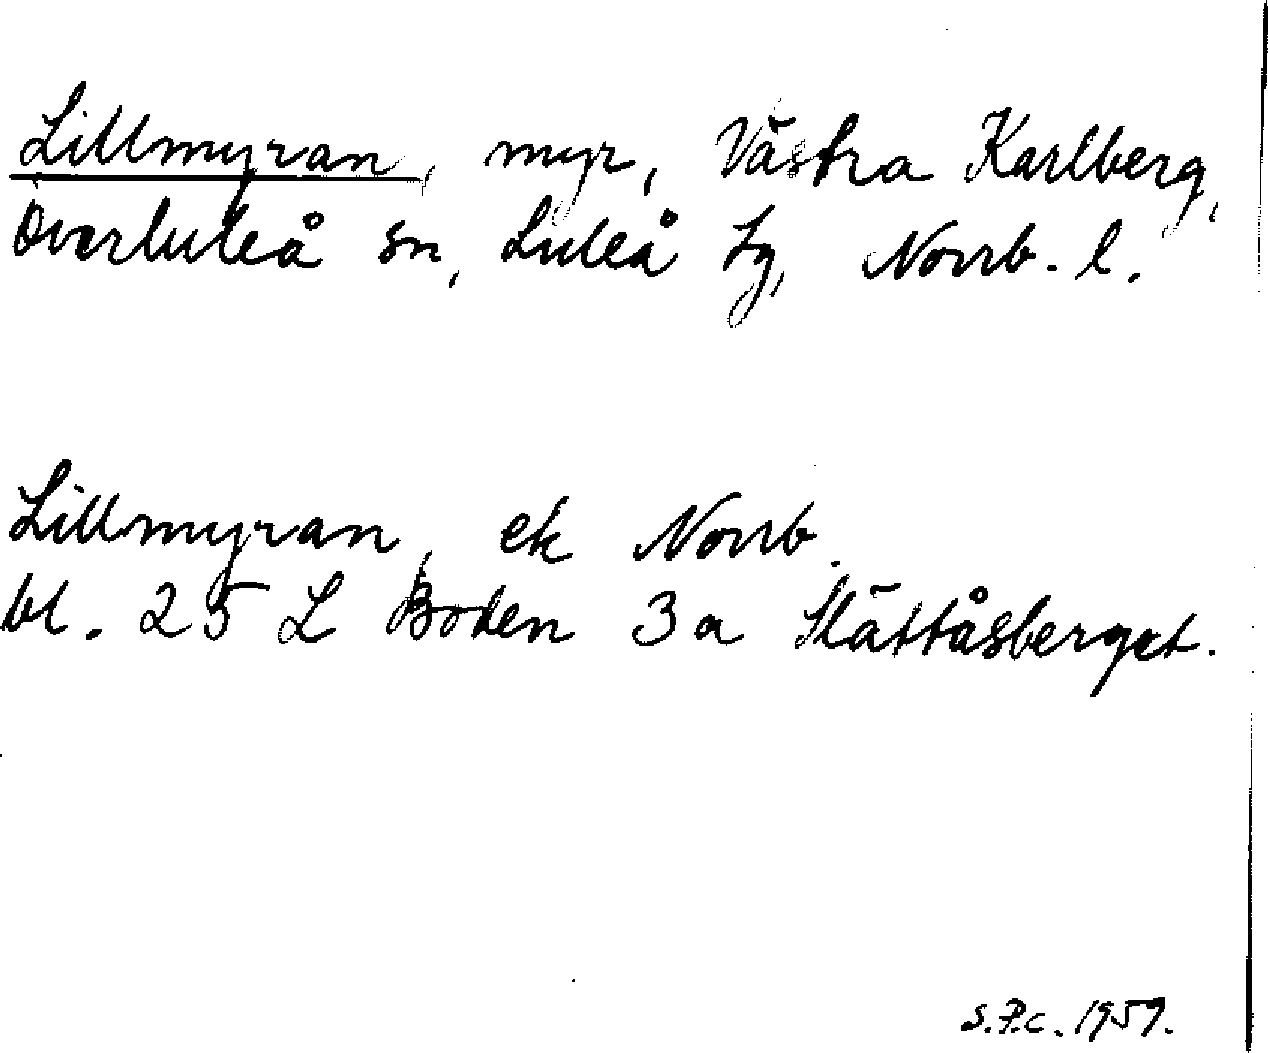 Lillmyran, myr, Västra Karlberg,
Överluleå sn, Luleå tg, Norrb. l.
Lillmyran, ek Norrb.
bl. 25 L Boden 3a Slättåsberget.
S.P.c. 1959.